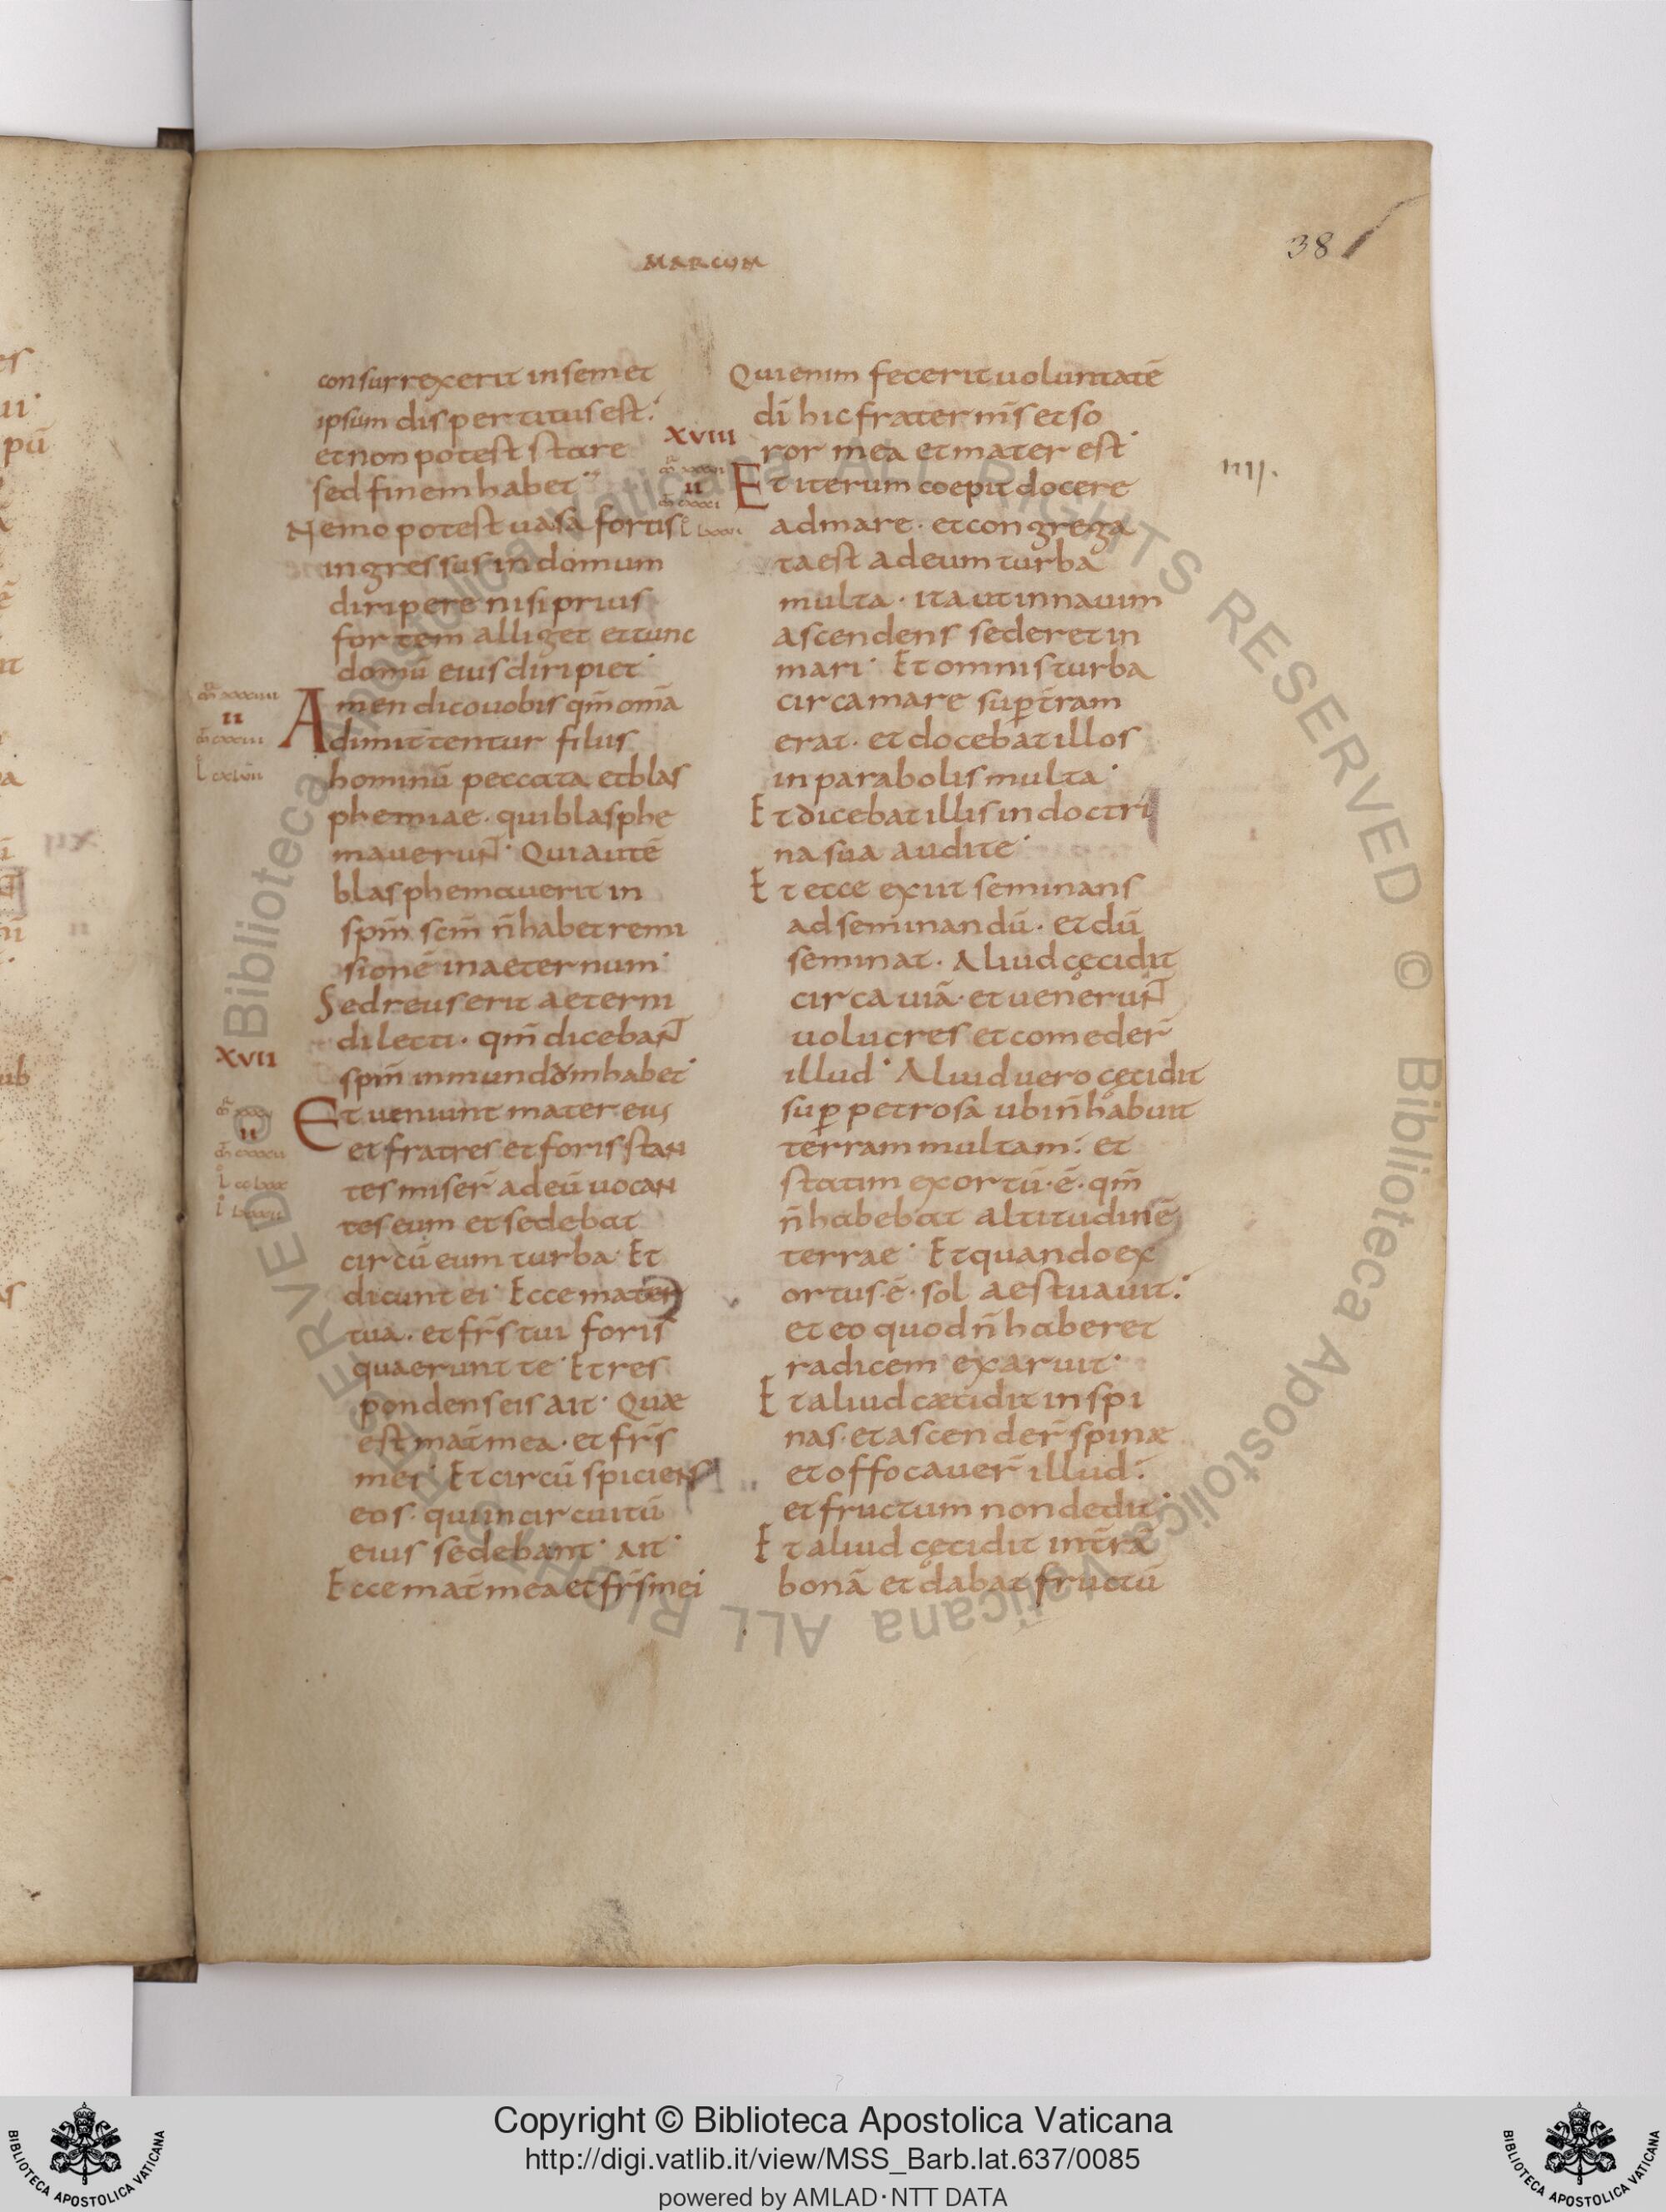 MARCUM
38
consurrexerit in semet
ipsum dispertitus est.
et non potest stare
sed finem habet
Nemo potest uasa fortis
ingressus in domum
diripere nisi prius
fortem alliget et tunc
domū eius diripiet·
Amen dico uobis qm̄ omā
dimittentur filiis
hominū peccata et blas
phemiae· qui blasphe
mauerunt· Qui autē
blasphemauerit in
spm̄ scm̄ n̄ habet remi
sionē in aeternum·
Sed reus erit aeterni
dilecti· qm̄ dicebant
XVII
spm̄ inmundom habet·
Et ueniunt mater eius
et fratres et foris stan
tes miser̄ ad eū uocan
tes eum et sedebat
circū eum turba· Et
dicunt ei· Ecce mater
tua· et fr̄s tui foris
quaerunt te· Et res
pondens eis ait· Quae
est mat̄ mea· et fr̄s
mei· Et circū spiciens
eos· qui in circuitū
eius sedebant· ait·
Ecce mat̄ mea et fr̄s mei
Qui enim fecerit uoluntatē
dī hic frater m̄s et so
XVIII
ror mea et mater est·
Et iterum coepit docere
IIII·
ad mare· et congrega
ta est ad eum turba
multa· ita ut in nauim
ascendens sederet in
mari· Et omnis turba
circa mare sup t̄ram
erat· et docebat illos
in parabolis multa·
Et dicebat illis in doctri
na sua audite·
Et ecce exiit seminans
ad seminandū· et dū
seminat· Aliud cecidit
circa uiā· et uenerunt
uolucres et comeder̄
illud· Aliud uero cecidit
sup petrosa ubi n̄ habuit
terram multam· et
statim exortū·ē· qm̄
n̄ habebat altitudinē
terrae· Et quando ex
ortus·ē· sol aestuauit·
et eo quod n̄ haberet
radicem exaruit·
Et aliud caecidit in spi
nas· et ascender̄ spinae
et offocauer̄ illud·
et fructum non dedit·
Et aliud cecidit in t̄rā
bonā et dabat fructū
Biblioteca Apostolica Vaticana ALL RIGHTS RESERVED © Biblioteca Apostolica Vaticana ALL RIGHTS RESERVED ©
BIBLIOTECA APOSTOLICA VATICANA
Copyright © Biblioteca Apostolica Vaticana
http://digi.vatlib.it/view/MSS_Barb.lat.637/0085
powered by AMLAD·NTT DATA
BIBLIOTECA APOSTOLICA VATICANA